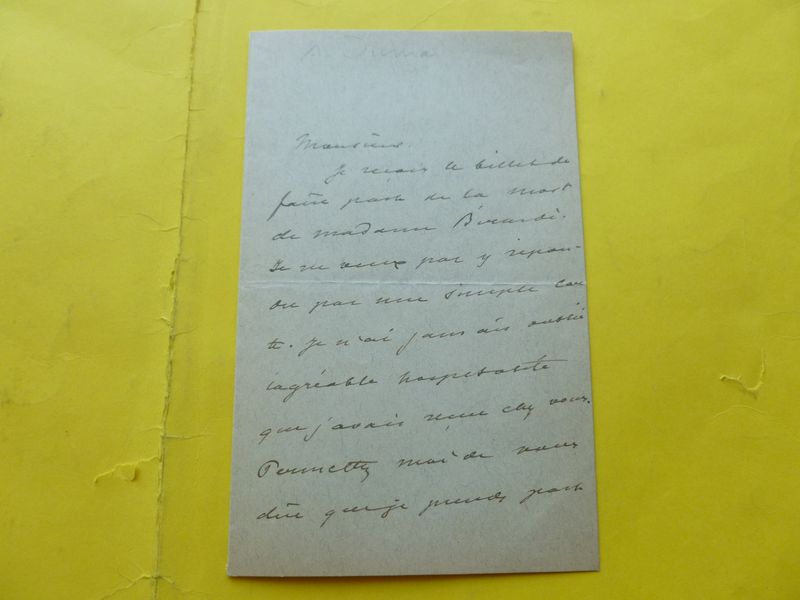 A. Dumas
Monsieur.
Je reçois le billet de
faire part de la mort
de madame Bérardi.
Je ne veux pas y répon-
dre par une simple car
te. Je n'ai jamais oublié
l'agréable hospitalité
que j'avais reçue chez vous.
Permettez moi de vous
dire que je prends part